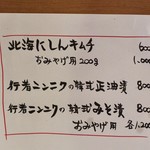 北海にしんキムチ 600
おみやげ用200g 1,000
行者ニンニクの韓式正油漬 800
行者ニンニクの韓式みそ漬 800
おみやげ用 各1,200